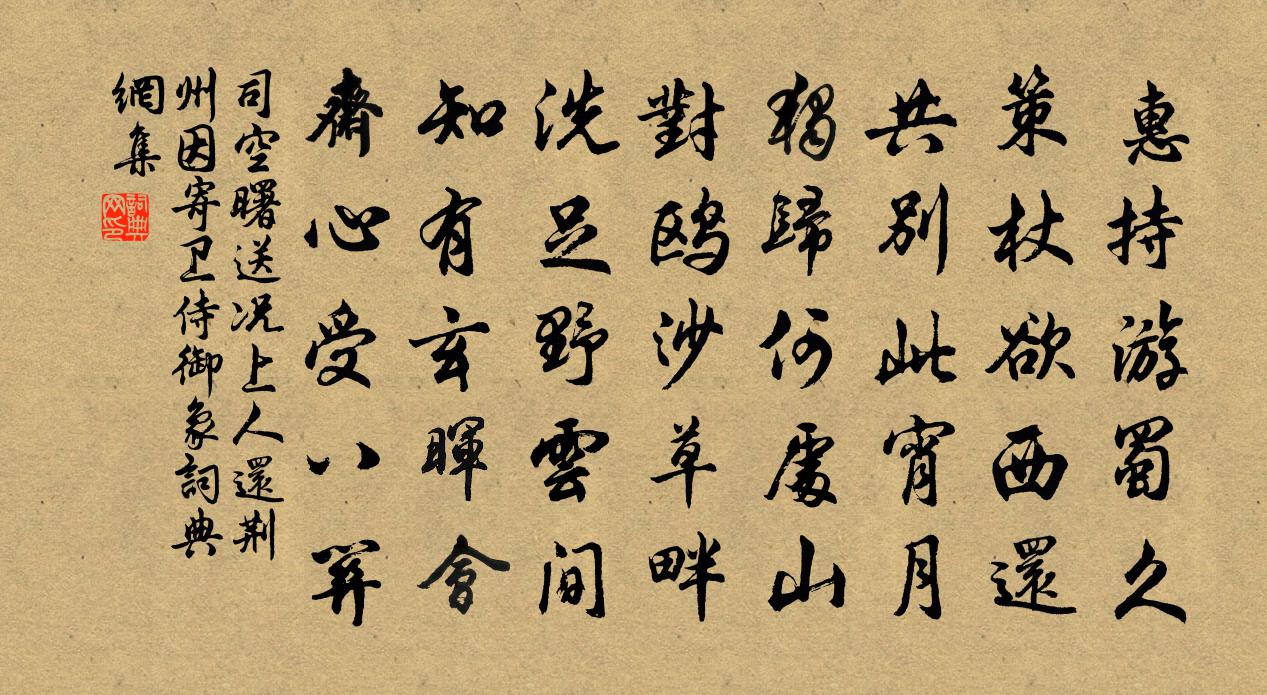 惠持游蜀久
策杖欲西還
共別此宵月
獨歸何處山
對鷗沙草畔
洗足野雲間
知有玄暉會
齋心受八關
司空曙送况上人還荆
州因寄卫侍御象詞典
網集
詞典
网印